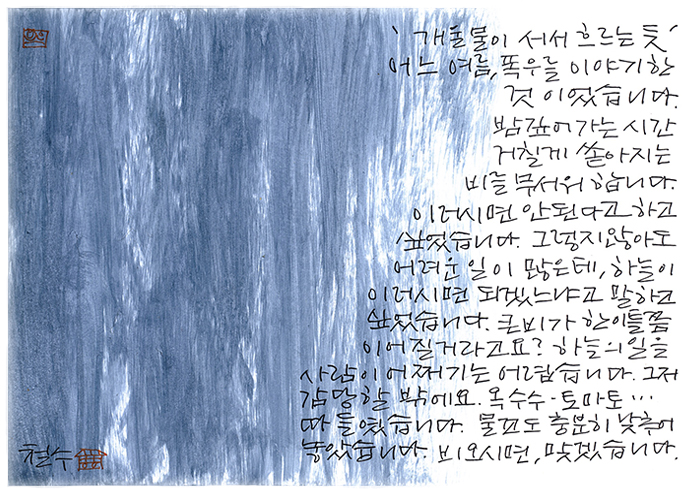 '개울물이 서서 흐르는 듯'
어느 여름, 폭우를 이야기한
것이었습니다.
밤 깊어가는 시간
거칠게 쏟아지는
비를 무서워합니다.
이러시면 안된다고 하고
싶었습니다. 그렇지않아도
어려운 일이 많은데, 하늘이
이러시면 되겠느냐고 말하고
싶었습니다. 큰비가 한이틀쯤
이어질거라고요? 하늘의 일을
사람이 어쩌기는 어렵습니다. 그저
감당할 밖에요. 옥수수·토마토…
따 들였습니다. 물꼬도 충분히 낮추어
놓았습니다. 비오시면, 맞겠습니다.
철수